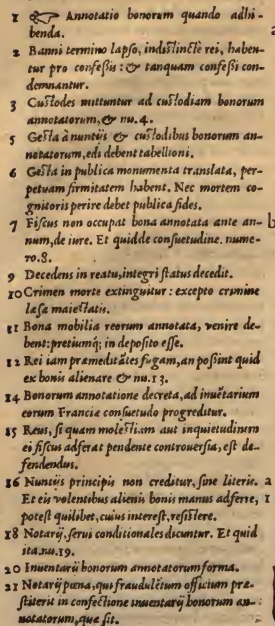 1 ☞ Annotatio bonorum quando adhi-
benda.
2 Banni termino lapso, indistinctè rei, haben-
tur pro confeßis: & tanquam confeßi con-
demnantur.
3 Custodes mittuntur ad custodiam bonorum
annotatorum, & nu. 4.
5 Gesta à nuntijs & custodibus bonorum an-
notatorum, edi debent tabellioni.
6 Gesta in publica monumenta translata, per-
petuam firmitatem habent. Nec mortem co-
gnitoris perire debet publica fides.
7 Fiscus non occupat bona annotata ante an-
num, de iure. Et quid de consuetudine. nume-
ro. 8.
9 Decedens in reatu, integri status decedit.
10 Crimen morte extinguitur: excepto crimine
læsæ maiestatis.
11 Bona mobilia reorum annotata, venire de-
bent: pretiumq; in deposito esse.
12 Rei iam præmeditãtes fugam, an poßint quid
ex bonis alienare & nu. 13.
14 Bonorum annotatione decreta, ad inuẽtarium
eorum Franciæ consuetudo progreditur.
15 Reus, si quam molestiam aut inquietudinem
ei fiscus adferat pendente controuersia, est de-
fendendus.
16 Nuntijs principis non creditur, sine literis.
Et eis volentibus alienis bonis manus adferre,
potest quilibet, cuius interest, resistere.
18 Notarij, serui conditionales dicuntur. Et quid
ita. nu. 19.
20 Inuentarij bonorum annotatorum forma.
21 Notarij pœna, qui fraudulẽtum officium præ-
stiterit in confectione inuentarij bonorum an-
notatorum, quæ sit.